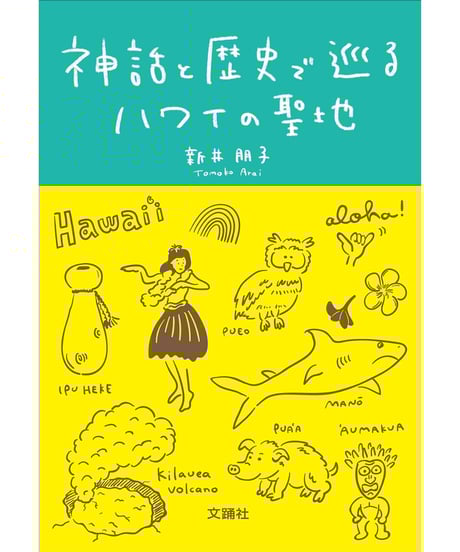 神話と歴史で巡る
ハワイの聖地
新井朋子
Tomoko Arai
Hawai'i
aloha!
PUEO
IPU HEKE
MANŌ
PUA'A
'AUMAKUA
Kilauea
volcano
文踊社